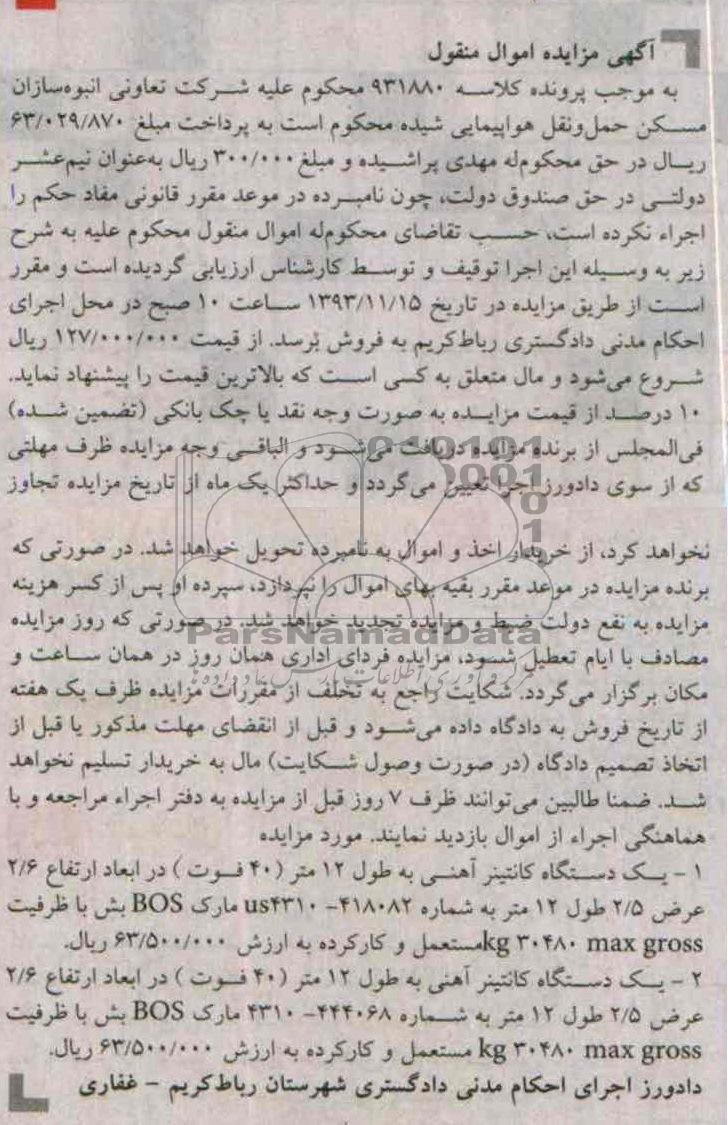 آگهی مزایده اموال منقول
به موجب پرونده کلاسه ۹۳۱۸۸۰ محکوم علیه شرکت تعاونی انبوه‌سازان
مسکن حمل‌ونقل هواپیمایی شیده محکوم است به پرداخت مبلغ ۶۳/۰۲۹/۸۷۰
ریال در حق محکوم‌له مهدی پراشیده و مبلغ ۳۰۰/۰۰۰ ریال به‌عنوان نیم‌عشر
دولتی در حق صندوق دولت، چون نامبرده در موعد مقرر قانونی مفاد حکم را
اجراء نکرده است، حسب تقاضای محکوم‌له اموال منقول محکوم علیه به شرح
زیر به وسیله این اجرا توقیف و توسط کارشناس ارزیابی گردیده است و مقرر
است از طریق مزایده در تاریخ ۱۳۹۳/۱۱/۱۵ ساعت ۱۰ صبح در محل اجرای
احکام مدنی دادگستری رباط‌کریم به فروش بُرسد. از قیمت ۱۲۷/۰۰۰/۰۰۰ ریال
شروع می‌شود و مال متعلق به کسی است که بالاترین قیمت را پیشنهاد نماید.
۱۰ درصد از قیمت مزایده به صورت وجه نقد یا چک بانکی (تضمین شده)
فی‌المجلس از برنده مزایده دریافت می‌شود و الباقی وجه مزایده ظرف مهلتی
که از سوی دادورز اجرا تعیین می‌گردد و حداکثر یک ماه از تاریخ مزایده تجاوز
نخواهد کرد، از خریدار اخذ و اموال به نامبرده تحویل خواهد شد. در صورتی که
برنده مزایده در موعد مقرر بقیه بهای اموال را نپردازد، سپرده او پس از کسر هزینه
مزایده به نفع دولت ضبط و مزایده تجدید خواهد شد. در صورتی که روز مزایده
ParsNamadData
مصادف با ایام تعطیل شود، مزایده فردای اداری همان روز در همان ساعت و
مکان برگزار می‌گردد. شکایت راجع به تخلف از مقررات مزایده ظرف یک هفته
از تاریخ فروش به دادگاه داده می‌شود و قبل از انقضای مهلت مذکور یا قبل از
اتخاذ تصمیم دادگاه (در صورت وصول شکایت) مال به خریدار تسلیم نخواهد
شد. ضمنا طالبین می‌توانند ظرف ۷ روز قبل از مزایده به دفتر اجراء مراجعه و با
هماهنگی اجراء از اموال بازدید نمایند. مورد مزایده
۱ - یک دستگاه کانتینر آهنی به طول ۱۲ متر (۴۰ فوت) در ابعاد ارتفاع ۲/۶
عرض ۲/۵ طول ۱۲ متر به شماره ۴۱۸۰۸۲- us۴۳۱۰ مارک BOS بش با ظرفیت
kg ۳۰۴۸۰ max gross مستعمل و کارکرده به ارزش ۶۳/۵۰۰/۰۰۰ ریال.
۲ - یک دستگاه کانتینر آهنی به طول ۱۲ متر (۴۰ فوت) در ابعاد ارتفاع ۲/۶
عرض ۲/۵ طول ۱۲ متر به شماره ۴۴۴۰۶۸- ۴۳۱۰ مارک BOS بش با ظرفیت
kg ۳۰۴۸۰ max gross مستعمل و کارکرده به ارزش ۶۳/۵۰۰/۰۰۰ ریال.
دادورز اجرای احکام مدنی دادگستری شهرستان رباط‌کریم - غفاری